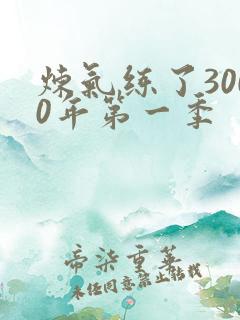 炼氣练了300
0年第一季
帝柒重莲
未经同意禁止转载